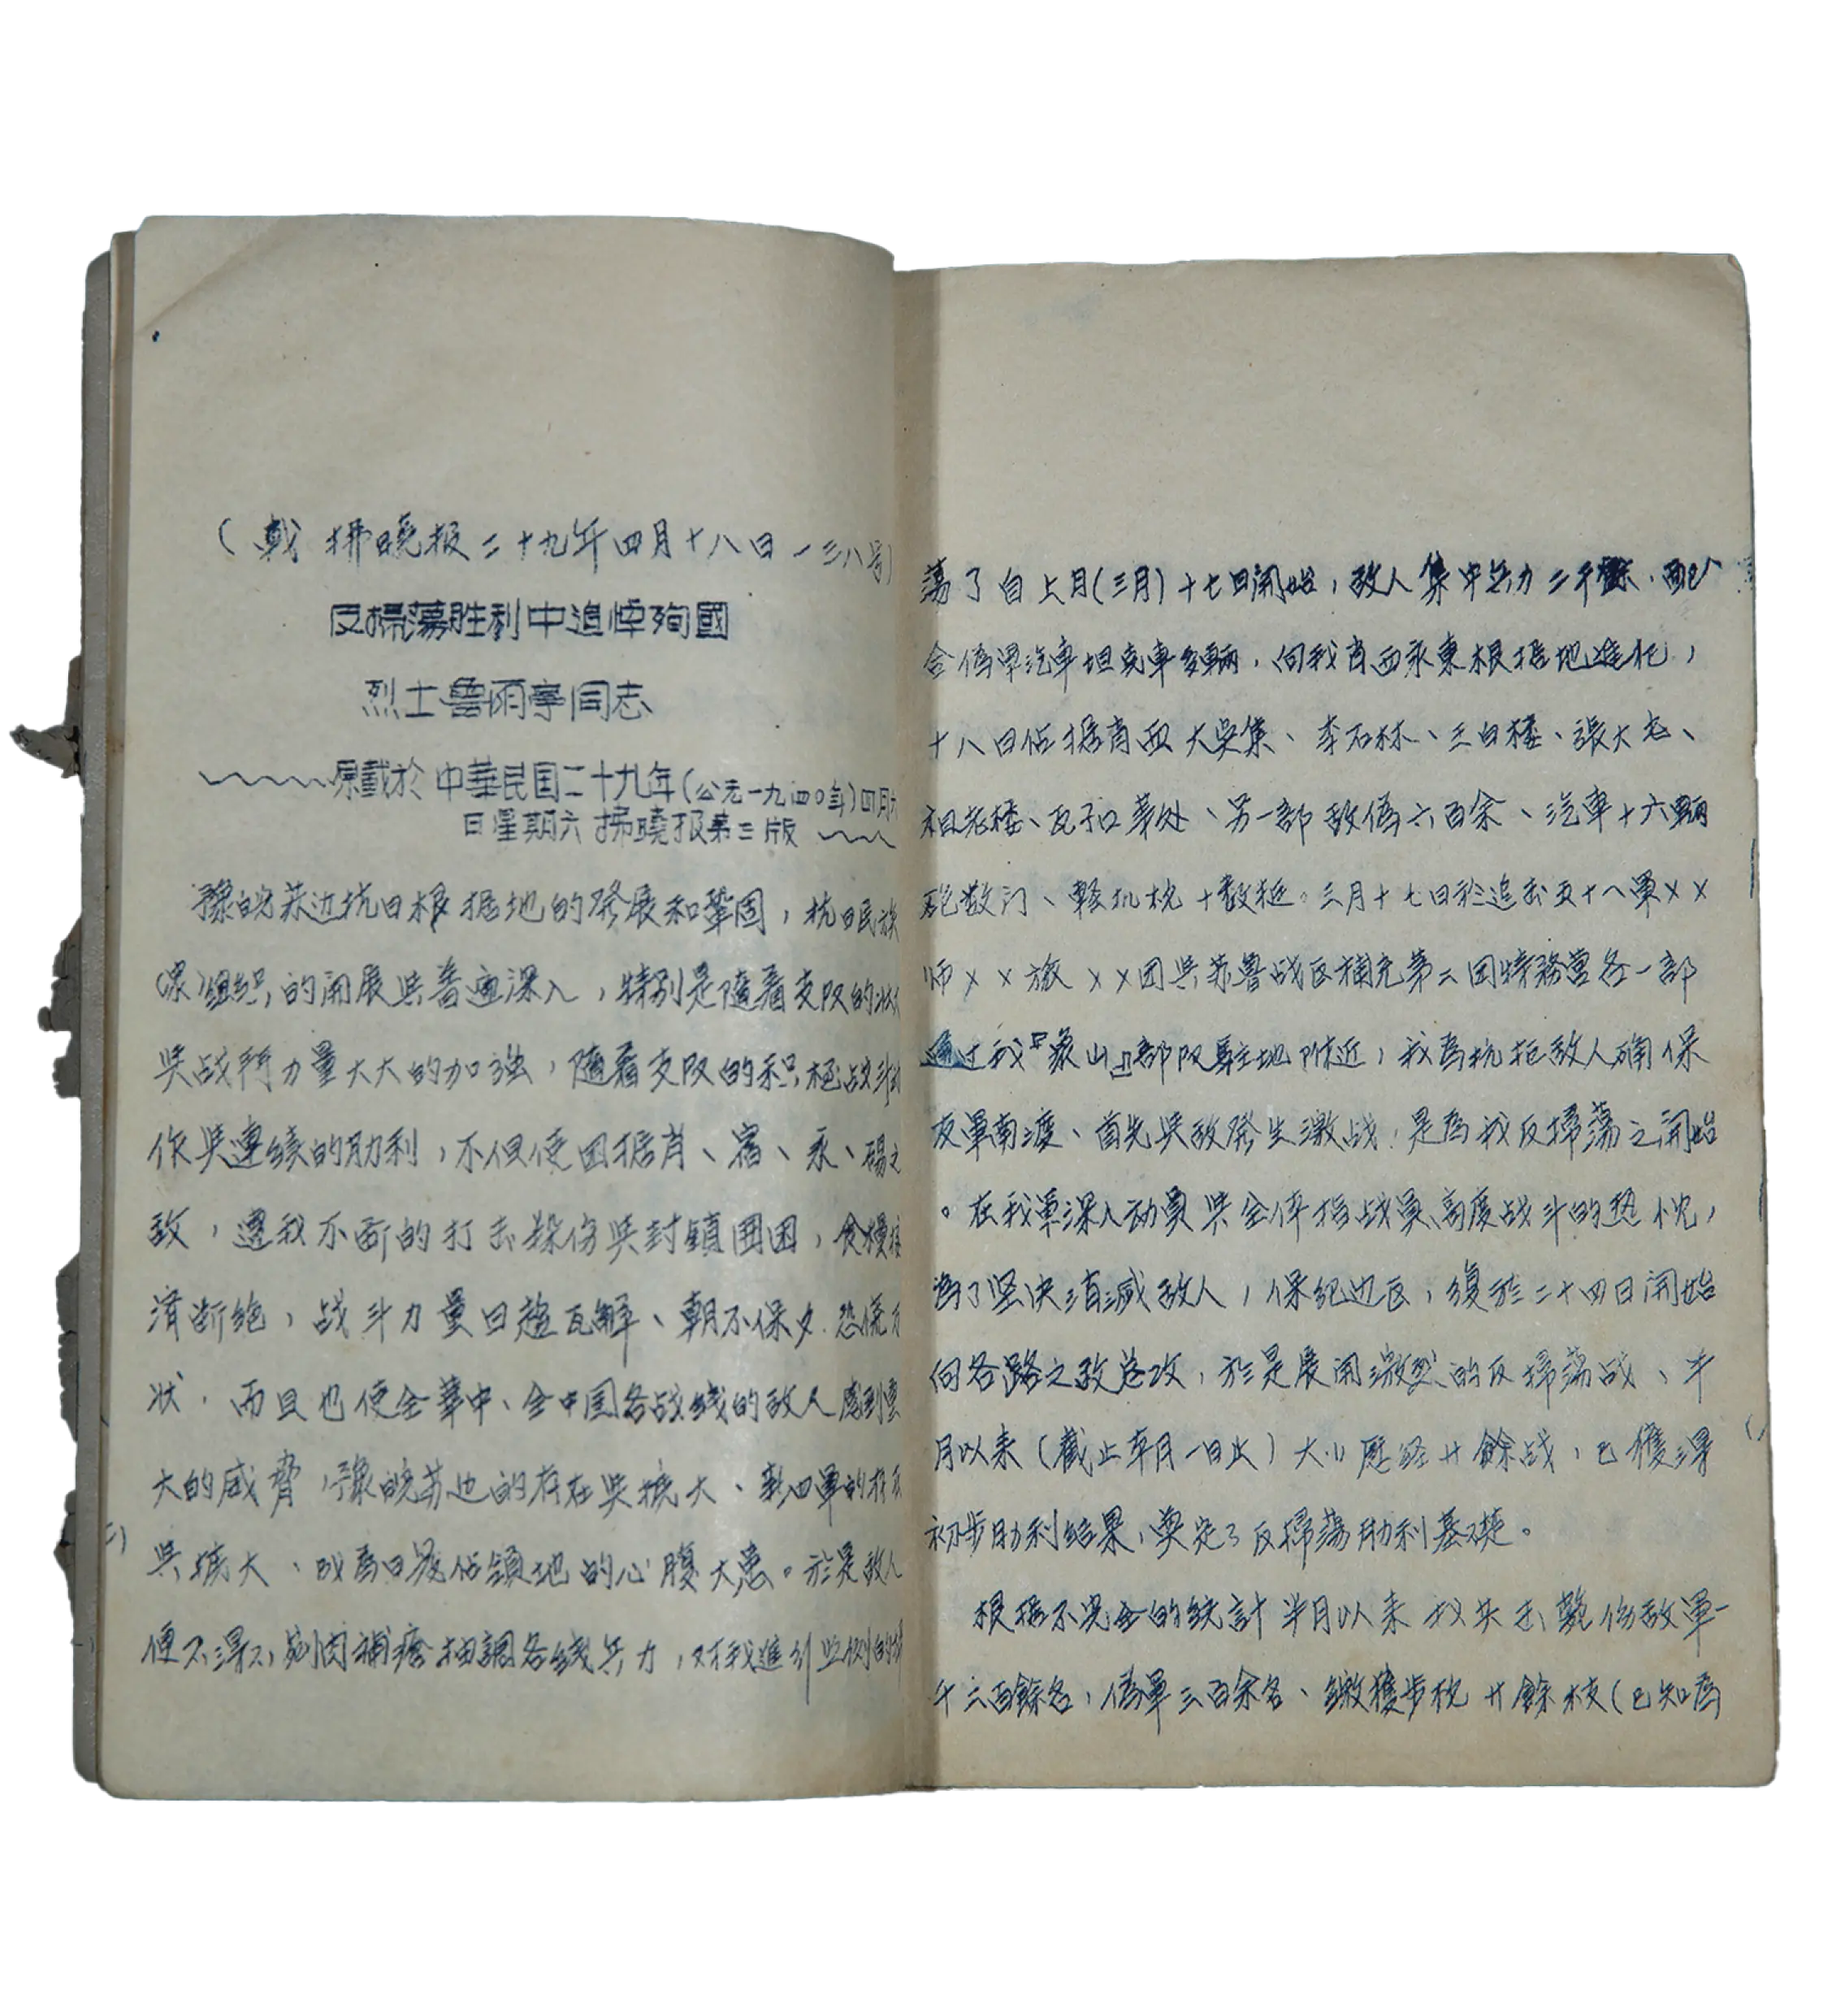 （載 拂曉报二十九年四月十八日一三八号）
反掃蕩胜利中追悼殉國
烈士魯雨亭同志
原載於中華民国二十九年（公元一九四〇年）四月
日星期六拂曉报第三版
豫皖苏边抗日根据地的發展和鞏固，抗日民族
组织的開展與普遍深入，特别是隨着支队的
與战鬥力量大大的加强，隨着支队的积极战斗
作與連续的胜利，不但使困据肖、宿、永、碭之
敌，遭我不断的打击殺伤與封鎖囲困，食糧
濟断绝，战斗力量日趨瓦解、朝不保夕.恐慌万
状．而且也使全華中、全中国各战线的敌人感到重
大的威脅，豫皖苏边的存在與擴大、新四軍的存在
與擴大、成為日寇佔領地的心腹大患。於是敌人
便不得不剜肉補瘡抽調各线兵力，对我進行
蕩了自上月（三月）十七日開始，敌人集中兵力二千餘．配
合偽軍汽車坦克車多輛．向我肖西永東根据地進犯，
十八日佔据肖西大吳集、李石林、三白楼、張大屯、
祖老楼、瓦子口等处、另一部敌偽六百余、汽車十六輛
砲数门、輕机枪十数挺。三月十七日於追击五十八軍××
师××旅××团與苏魯战区補充第二团特務营各一部
通过我『象山』部队駐地附近，我為抗拒敌人确保
友軍南渡、首先與敌發生激战．是為我反掃蕩之開始
。在我軍深入动員與全体指战員高度战斗的热忱，
為了坚决消滅敌人，保纪边区，復於二十四日開始
向各路之敌总攻，於是展開激烈的反掃蕩战、半
月以来（截止本月一日止）大小歷经廿餘战，已獲得
初步胜利结果，奠定了反掃蕩胜利基礎。
根据不完全的统計半月以来我共击斃伤敌軍一
千六百餘名，偽軍三百余名、缴獲步枪廿餘枝（已知為